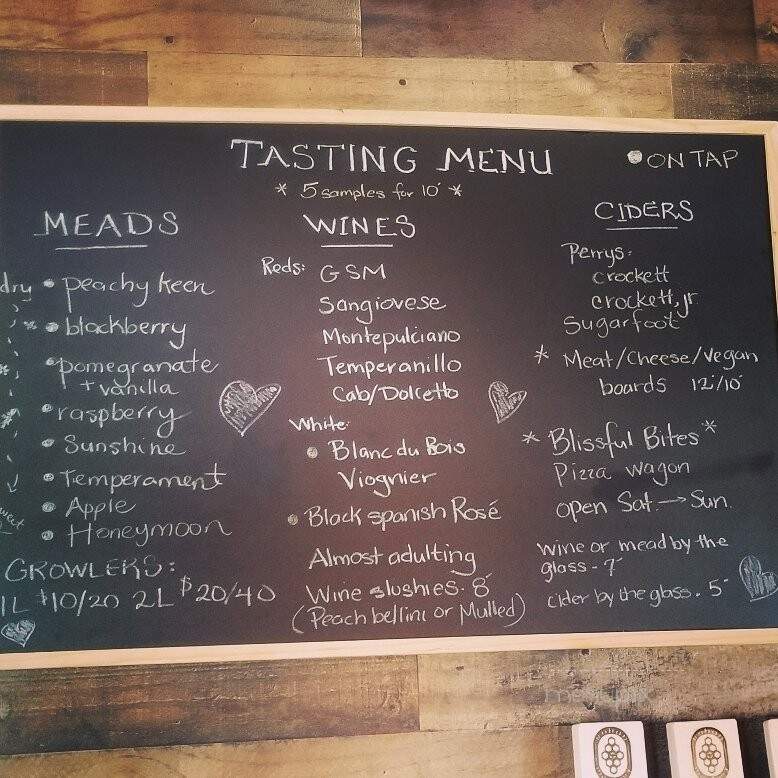 TASTING MENU
ON TAP
* 5 samples for 10 *
MEADS
dry
peachy keen
blackberry
pomegranate
+ vanilla
raspberry
Sunshine
Temperament
Apple
Honeymoon
GROWLERS:
1L $10/20 2L $20/40
WINES
Reds: GSM
Sangiovese
Montepulciano
Temperanillo
Cab/Dolcetto
White:
Blanc du Bois
Viognier
Black spanish Rosé
Almost adulting
Wine slushies - 8
(Peach bellini or Mulled)
CIDERS
Perrys:
crockett
crockett, jr
Sugarfoot
* Meat/Cheese/Vegan
boards 12/10
* Blissful Bites *
Pizza wagon
open Sat. → Sun.
wine or mead by the
glass - 7
cider by the glass - 5